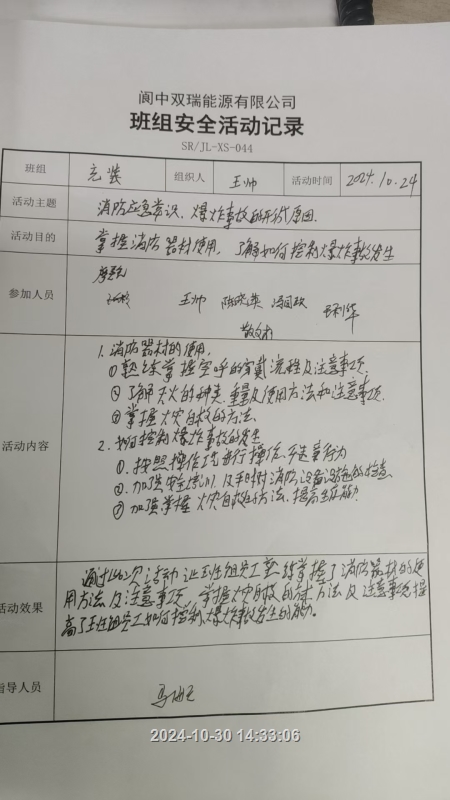 阆中双瑞能源有限公司
班组安全活动记录
SR/JL-XS-044
班组 充装 组织人 王帅 活动时间 2024.10.24
活动主题 消防应急常识、爆炸事故的形成原因.
活动目的 掌握消防器材使用，了解如何控制爆炸事故发生
参加人员
王帅
活动内容
1. 消防器材的使用.
①熟练掌握空呼的穿戴流程及注意事项.
②了解灭火的种类、重量及使用方法和注意事项.
③掌握火灾自救的方法.
2. 如何控制爆炸事故的发生
①. 按照操作规进行操作、不违章行为
②. 加强安全培训以及平日对消防设备设施的检查
③ 加强掌握火灾自救的方法、提高应能力
活动效果
通过此次活动让班组员工熟练掌握了消防器材的使
用方法及注意事项、掌握火灾自救的方法及注意事项提
高了班组员工如何控制爆炸事故发生的能力。
指导人员
2024-10-30 14:33:06